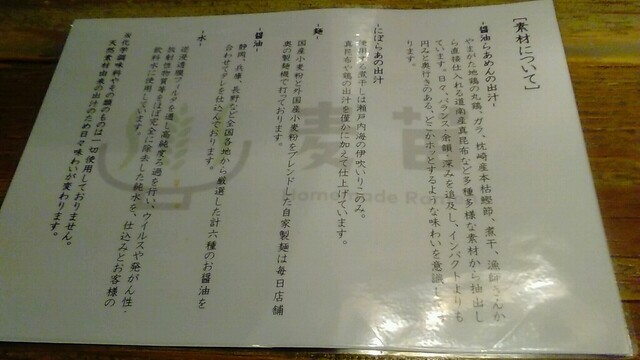 【素材について】
-醤油らあめんの出汁-
やまがた地鶏の丸鶏・ガラ、枕崎産本枯鰹節、煮干、漁師さんか
ら直接仕入れる道南産真昆布など多種多様な素材から抽出し
ています。日々、バランス・余韻・深みを追及し、インパクトよりも
円みと奥行きのある、どこかホッとするような味わいを意識して
ります。
-にぼらあの出汁-
使用する煮干しは瀬戸内海の伊吹いりこのみ。
真昆布や鶏の出汁を僅かに加えて仕上げています。
-麺-
国産小麦粉と外国産小麦粉をブレンドした自家製麺は毎日店舗
奥の製麺機で打っております。
-醤油-
静岡、兵庫、長野など全国各地から厳選した計六種のお醤油を
合わせてダレを仕込んでおります。
-水-
逆浸透膜フィルタを通し高純度ろ過を行い、ウイルスや発がん性・
放射性物質等をほぼ完全に除去した純水を、仕込みとお客様の
飲料水に使用しています。
※化学調味料やその類のものは一切使用しておりません。
天然素材由来の出汁のため日々味わいが変わります。
麦苗
Homemade Ram